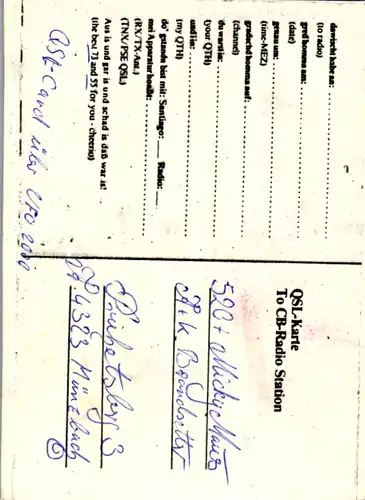 dawischt habe an:
(to radio)
gred homma am:
(date)
genau um:
(time-MEZ)
gradschd homma auf:
(channel)
du warst in:
(your QTH)
und i in:
(my QTH)
do' gstandn bist mit: Santiago: Radio:
mei Apparatur hoaßt:
(RX/TX-Ant.)
(TNX/PSE QSL)
Aus is und gar is und schad is daß war is!
(the best 73 and 55 for you - cheerio)
QSL-Card über CEO 2000
QSL-Karte
To CB-Radio Station
520 + Micky Maus
3
A. 4323 Münzbach